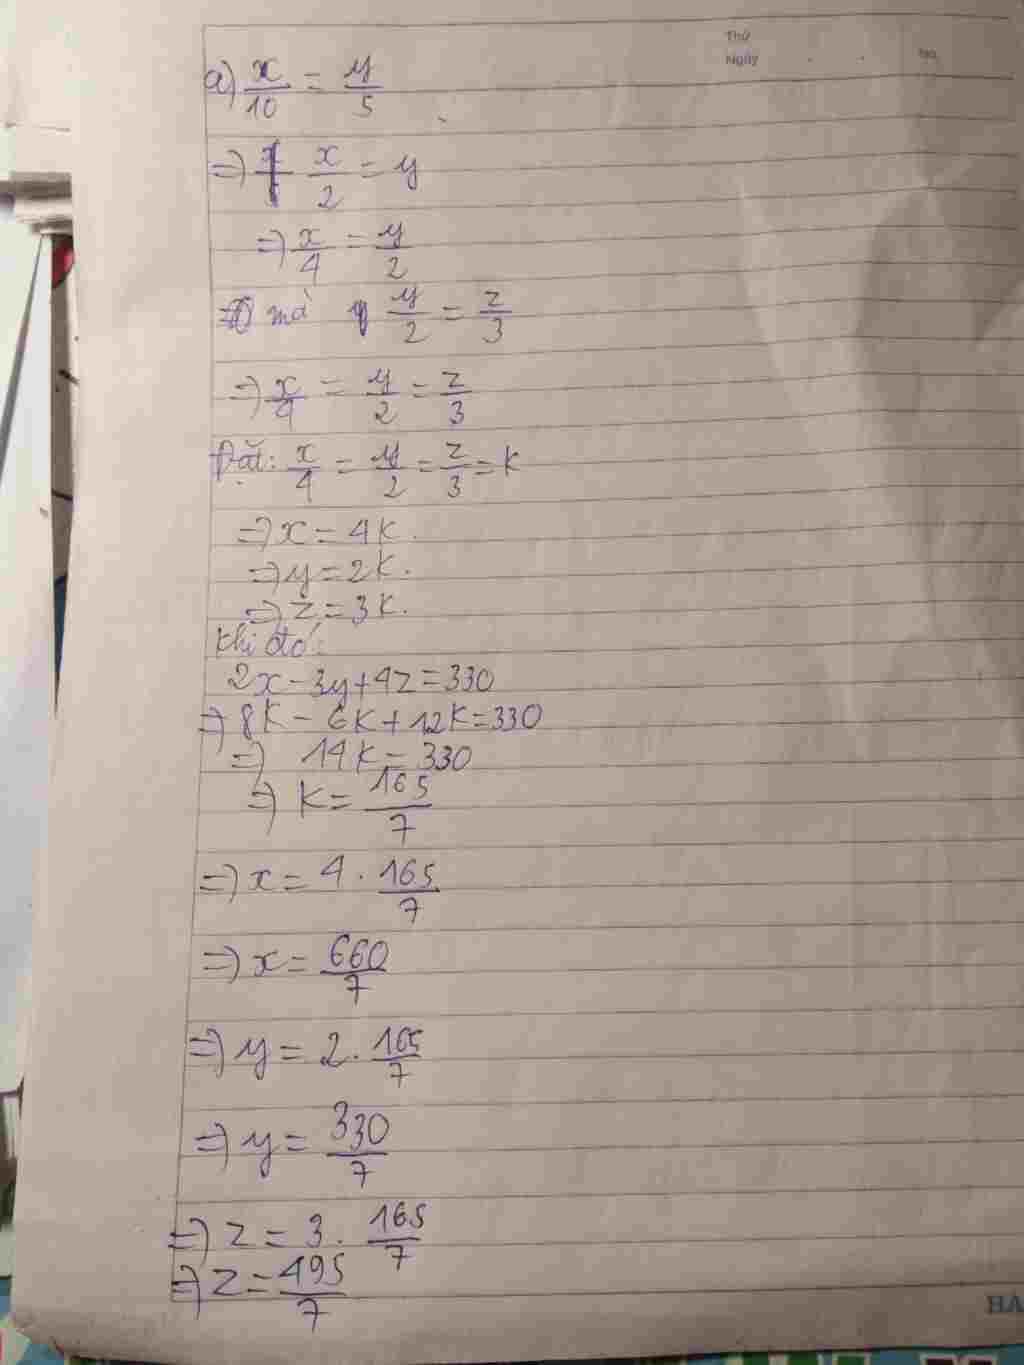 Thứ
Ngày . . No.
a) x/10 = y/5
=> x/2 = y
=> x/4 = y/2
mà y/2 = z/3
=> x/4 = y/2 = z/3
Đặt: x/4 = y/2 = z/3 = k
=> x = 4k.
=> y = 2k.
=> z = 3k.
Khi đó:
2x - 3y + 4z = 330
=> 8k - 6k + 12k = 330
=> 14k = 330
=> k = 165/7
=> x = 4 . 165/7
=> x = 660/7
=> y = 2 . 165/7
=> y = 330/7
=> z = 3 . 165/7
=> z = 495/7
HA